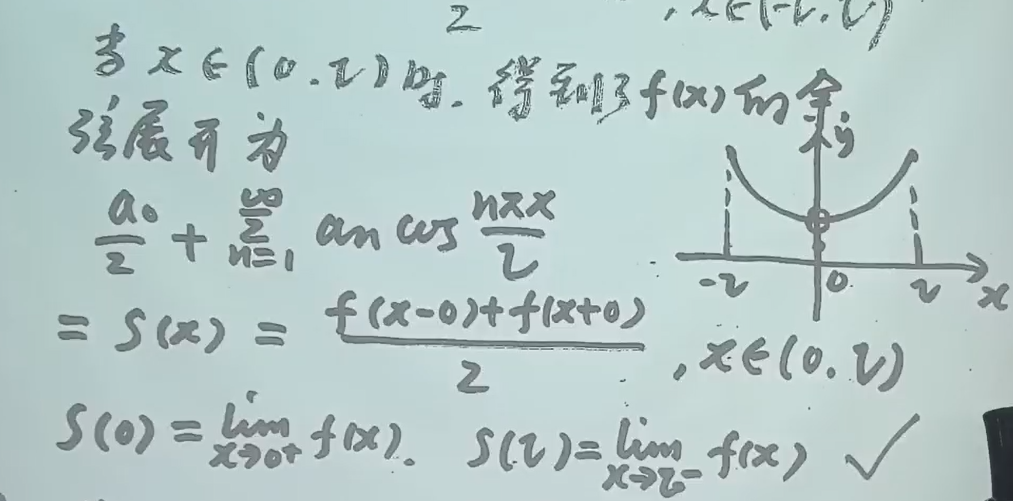 2 , x∈(-l.l)
当 x∈(0.l)时. 得到了f(x)的余
弦展开为
a₀/2 + ∞∑n=1 an cos nπx/l
= S(x) = f(x-0)+f(x+0)/2 , x∈(0.l)
S(0) = lim x→0+ f(x). S(l)=lim x→l- f(x) ✓
y
-l 0 l x